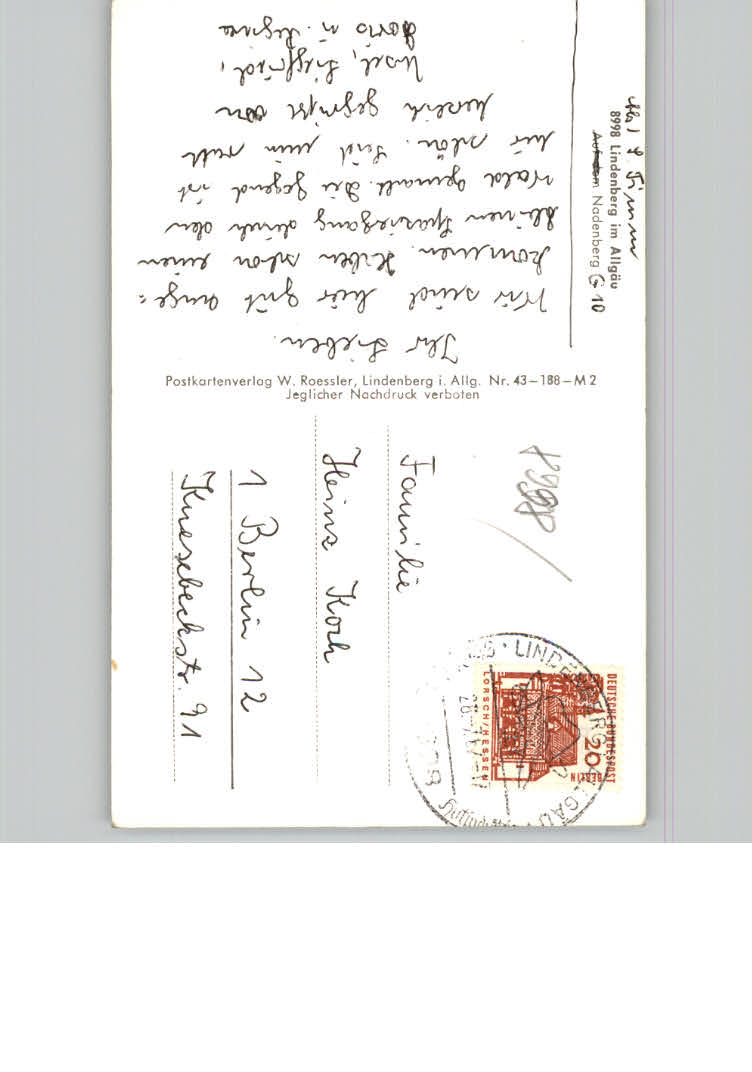 Ihr Lieben.
Wir sind hier gut ange=
kommen. Haben schon einen
kleinen Spaziergang durch den
Wald gemacht. Die Gegend ist
hier schön. Seid nun recht
herzlich gegrüßt von
Ursel, Siegfried,
Doris u. Regina
8998 Lindenberg im Allgäu
Auf dem Nadenberg G 10
Postkartenverlag W. Roessler, Lindenberg i. Allg. Nr. 43–188–M 2
Jeglicher Nachdruck verboten
8998
Familie
Heinz Koch
1 Berlin 12
Knesebeckstr. 91
DEUTSCHE BUNDESPOST
BERLIN
20
LORSCH/HESSEN
LINDENBERG
ALLGÄU